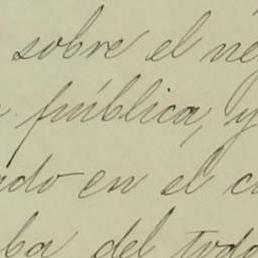 sobre el ne
pública, y
ado en el c
ba del todo